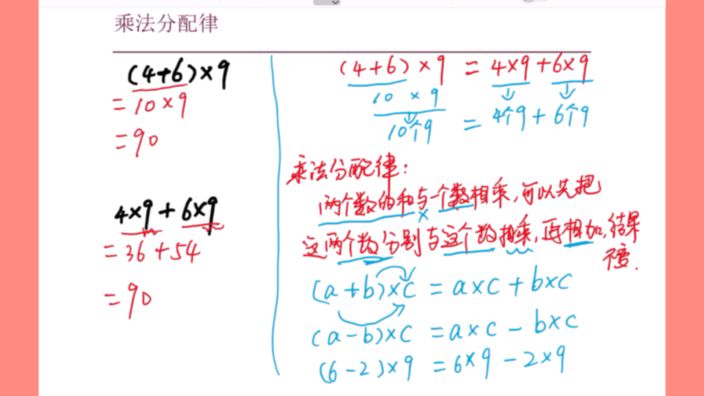 乘法分配律
(4+6)×9
=10×9
=90
4×9+6×9
=36+54
=90
(4+6)×9=4×9+6×9
10×9
10个9=4个9+6个9
乘法分配律:
两个数的和与一个数相乘,可以先把
×
这两个数分别与这个数相乘,再相加,结果
不变.
(a+b)×c=a×c+b×c
(a-b)×c=a×c-b×c
(6-2)×9=6×9-2×9